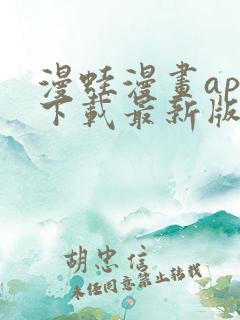 漫蛙漫畫ap
下載最新版
胡忠信
未经同意禁止转载